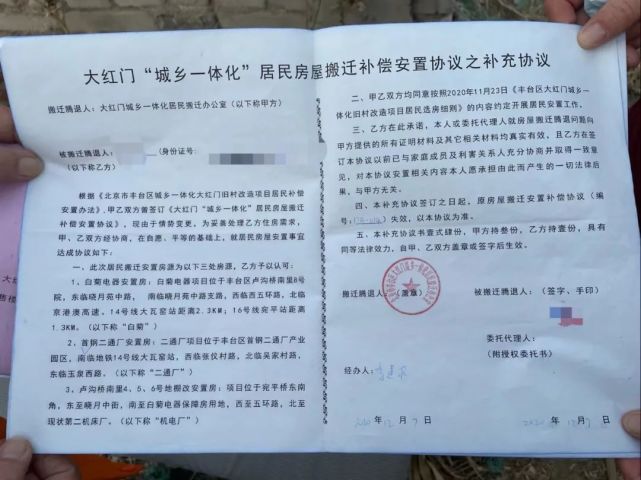 大红门“城乡一体化”居民房屋搬迁补偿安置协议之补充协议
搬迁腾退人：大红门城乡一体化居民搬迁办公室（以下称甲方）
被搬迁腾退人： （身份证号:
（以下称乙方）
根据《北京市丰台区城乡一体化大红门旧村改造项目居民补偿
安置办法》，甲乙双方曾签订《大红门“城乡一体化”居民房屋搬迁
补偿安置协议》，现由于情势变更，为妥善处理乙方住房需求，
甲、乙双方经协商，在自愿、平等的基础上，就居民房屋安置事宜
达成协议如下：
一、此次居民搬迁安置房源为以下三处房源，乙方予以认可：
1、白菊电器安置房：白菊电器项目位于丰台区卢沟桥南里8号
院，东临晓月苑中路， 南临晓月中路支路，西临西五环路，北临
京港澳高速，14号线大瓦窑站距离2.3KM；16号线宛平站距离
1.3KM。（以下称“白菊”）
2、首钢二通厂安置房：二通厂项目位于丰台区首钢二通厂产业
园区，南临地铁14号线大瓦窑站，西临张仪村路，北临吴家村路，
东临玉泉西路。（以下称“二通厂”）
3、卢沟桥南里4、5、6号地棚改安置房：项目位于宛平桥东南
角，东至晓月中街，南至白菊电器保障房用地，西至五环路，北至
现状第二机床厂。（以下称“机电厂”）
二、甲乙双方均同意按照2020年11月23日《丰台区大红门城乡一
体化旧村改造项目居民选房细则》的内容约定开展居民安置工作。
三、乙方在此承诺，本人或委托代理人就房屋搬迁腾退问题向
甲方提供的所有证明材料及其它相关材料均真实有效，且乙方在签
订本协议以前已与家庭成员及利害关系人充分协商并取得一致意
见，对本协议安置相关内容本人愿承担由此而产生的一切法律后
果，与甲方无关。
四、本补充协议签订之日起，原房屋搬迁安置补偿协议（编
号： ）失效，以本协议为准。
五、本补充协议书壹式肆份，甲方持叁份，乙方持壹份，具有
同等法律效力，自甲、乙双方盖章或签字后生效。
搬迁腾退人：（盖章） 被搬迁腾退人：（签字、手印）
委托代理人：
（附授权委托书）
经办人：
2020年12月7日 2020年12月7日